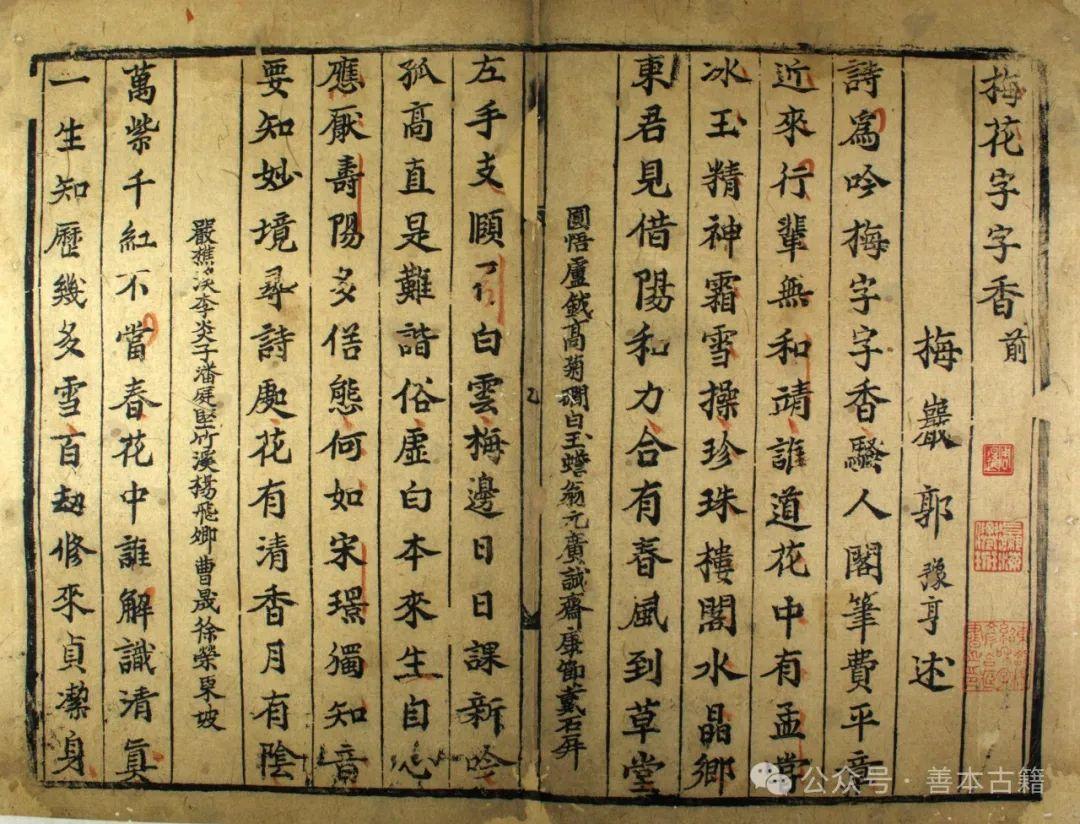 梅花字字香前
梅巖郭豫亨述
詩爲吟梅字字香騷人閣筆費平章
近來行輩無和靖誰道花中有孟嘗
冰玉精神霜雪操珍珠樓閣水晶鄉
東君見借陽和力合有春風到草堂
圓悟盧鉞高菊磵白玉蟾翁元廣誠齋康節戴石屏
左手支頤白雲梅邊日日課新吟
孤高直是難諧俗虛白本來生自心
應厭壽陽多倨態何如宋璟獨知音
要知妙境尋詩處花有清香月有陰
嚴樵溪李炎子潘庭堅竹溪楊飛卿曹晟徐榮東坡
萬紫千紅不當春花中誰解識清眞
一生知歷幾多雪百劫修來貞潔身
公众号·善本古籍